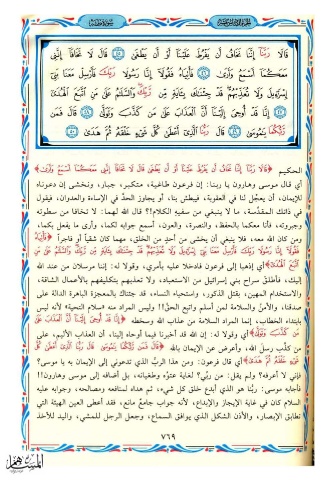 قَالَا رَبَّنَا إِنَّنَا نَخَافُ أَن يَفْرُطَ عَلَيْنَا أَوْ أَن يَطْغَىٰ ٤٥ قَالَ لَا تَخَافَا إِنَّنِي
مَعَكُمَا أَسْمَعُ وَأَرَىٰ ٤٦ فَأْتِيَاهُ فَقُولَا إِنَّا رَسُولَا رَبِّكَ فَأَرْسِلْ مَعَنَا بَنِي
إِسْرَائِيلَ وَلَا تُعَذِّبْهُمْ قَدْ جِئْنَاكَ بِآيَةٍ مِّن رَّبِّكَ وَالسَّلَامُ عَلَىٰ مَنِ اتَّبَعَ الْهُدَىٰ
٤٧ إِنَّا قَدْ أُوحِيَ إِلَيْنَا أَنَّ الْعَذَابَ عَلَىٰ مَن كَذَّبَ وَتَوَلَّىٰ ٤٨ قَالَ فَمَن
رَّبُّكُمَا يَا مُوسَىٰ ٤٩ قَالَ رَبُّنَا الَّذِي أَعْطَىٰ كُلَّ شَيْءٍ خَلْقَهُ ثُمَّ هَدَىٰ ٥٠
الحكيم ﴿قَالَا رَبَّنَا إِنَّنَا نَخَافُ أَن يَفْرُطَ عَلَيْنَا أَوْ أَن يَطْغَىٰ قَالَ لَا تَخَافَا إِنَّنِي مَعَكُمَا أَسْمَعُ وَأَرَىٰ﴾
أي قال موسى وهارون يا ربنا: إن فرعون طاغية، متكبر، جبار، ونخشى إن دعوناه
للإيمان، أن يعجّل لنا في العقوبة، فيبطش بنا، أو يجاوز الحدَّ في الإساءة والعدوان، فيقول
في ذاتك المقدَّسة، ما لا ينبغي من سفيه الكلام!؟ قال الله لهما: لا تخافا من سطوته
وجبروته، فأنا معكما بالحفظ، والنصرة، والعون، أسمع جوابه لكما، وأرى ما يفعل بكما،
ومن كان الله معه، فلا ينبغي أن يخشى من أحدٍ من الخلق، مهما كان شقياً أو فاجراً ﴿فَأْتِيَاهُ
اتَّبَعَ الْهُدَىٰ﴾ أي إذهبا إلى فرعون فادخلا عليه بأمري، وقولا له: إننا مرسلان من عند الله
إليك، فأطلقْ سراح بني إسرائيل من الاستعباد، ولا تعذبهم بتكليفهم بالأعمال الشاقة،
والاستخدام المهين، بقتل الذكور، واستحياء النساء، قد جئناك بالمعجزة الباهرة الدالة على
صدقنا، والأمنُ والسلامة لمن أسلم واتبع الحقَّ!! وليس المراد منه «سلام التحية» لأنه ليس
بابتداء الخطاب، إنما المراد السلامة من عذاب الله وسخطه ﴿إِنَّا قَدْ أُوحِيَ إِلَيْنَا أَنَّ الْعَذَابَ عَلَىٰ
مَن كَذَّبَ وَتَوَلَّىٰ﴾ أي وقولا له: إن الله قد أخبرنا فيما أوحاه إلينا، أن العذاب الأليم، على
من كذَّب رسلَ الله، وأعرض عن الإيمان بالله ﴿قَالَ فَمَن رَّبُّكُمَا يَا مُوسَىٰ قَالَ رَبُّنَا الَّذِي أَعْطَىٰ كُلَّ
شَيْءٍ خَلْقَهُ ثُمَّ هَدَىٰ﴾ أي قال فرعون: ومن هذا الربُّ الذي تدعوني إلى الإيمان به يا موسى؟
فإني لا أعرفه؟ ولم يقل: من ربّي؟ لغاية عتوّه وطغيانه، بل أضافه إلى موسى وهارون!!
فأجابه موسى: ربُّنا هو الذي أبدع خلق كل شيء، ثم هداه لمنافعه ومصالحه، وجوابه عليه
السلام كان في غاية الإيجاز والإبداع، لأنه جوابٌ جامعٌ مانع، فقد أعطى العين الهيئة التي
تطابق الإبصار، والأذن الشكل الذي يوافق السماع، وجعل الرجل للمشي، واليد للأخذ
٧٦٩